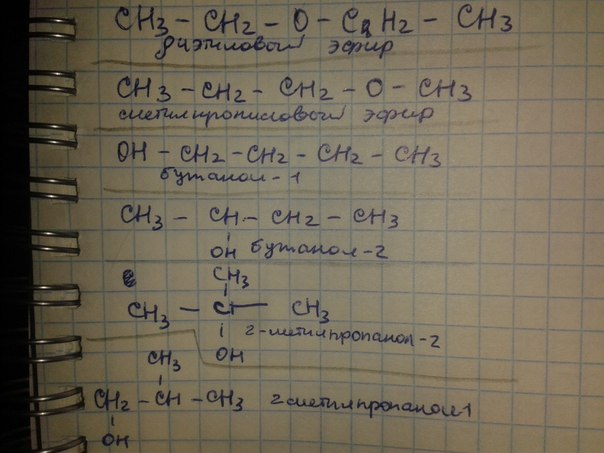 CH3 – CH2 – O – CH2 – CH3
диэтиловый эфир
CH3 – CH2 – CH2 – O – CH3
метилпропиловый эфир
OH – CH2 – CH2 – CH2 – CH3
бутанол-1
CH3 – CH – CH2 – CH3
OH бутанол-2
CH3
CH3 – C – CH3
2-метилпропанол-2
OH
CH3
CH2 – CH – CH3 2-метилпропанол-1
OH